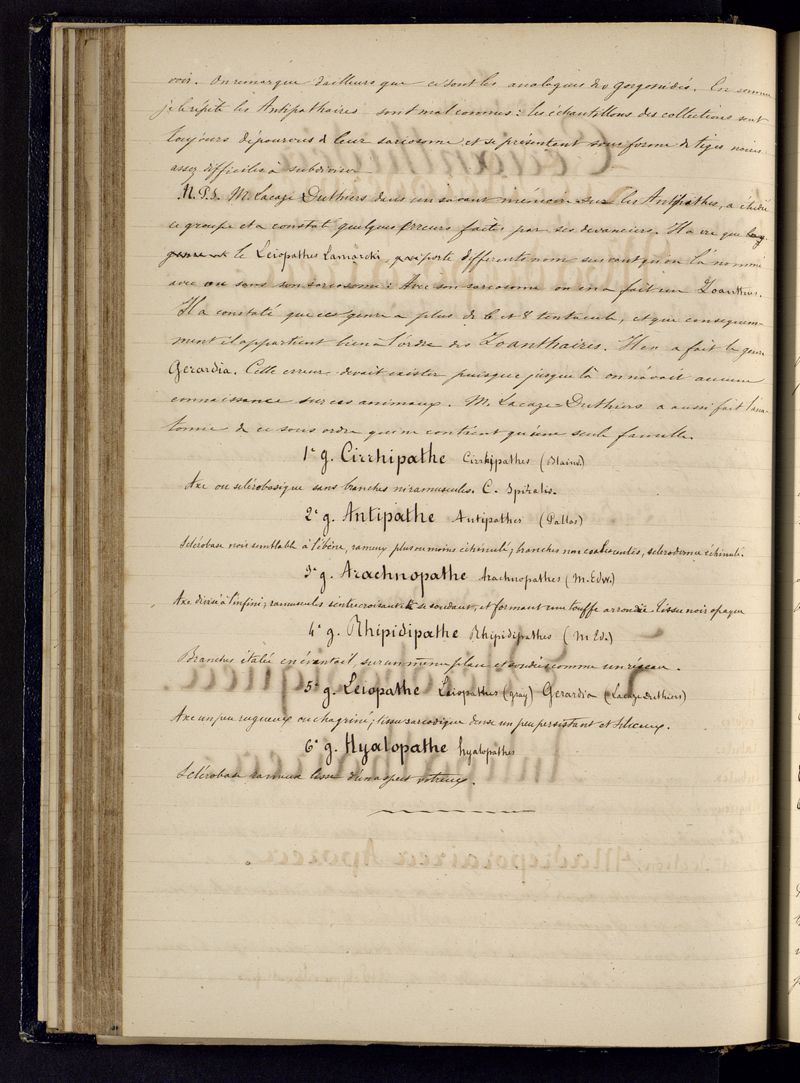 voir. On remarque d'ailleurs que ce sont les analogues des gorgonidés. En somme
je le répète les Antipathaires sont mal connus : les échantillons des collections sont
toujours dépourvus de leur sarcosome et se présentent sous forme de tiges noires
assez difficiles à subdiviser
M. Lacaze Duthiers dans un savant mémoire sur les Antipathes, a étudié
ce groupe et a constaté quelques erreurs faites par ses devanciers. Il a vu que le
genre le Leiopathes Lamarcki, porte différents nom suivant qu'on l'a nommé
avec ou sans son sarcosome : Avec son sarcosome on en a fait un Zoanthus.
Il a constaté que ces genre a plus de 6 et 8 tentacules, et que conséquem-
ment il appartient bien à l'ordre des Zoanthaires. Il en a fait le genre
Gerardia. Cette erreur devait exister puisque jusque là on n'avait aucune
connaissance sur ces animaux. M. Lacaze-Duthiers a aussi fait l'ana-
tomie de ce sous ordre qui ne contient qu'une seule famille.
1e g. Cirrhipathe Cirrhipathes (Blainv.)
Axe ou sclérobasique sans branches ni ramuscules. C. Spiralis.
2e g. Antipathe Antipathes (Pallas)
Sclérobase noir semblable à l'ébène, rameux plus ou moins échinulé; branches non coalescentes, scléroderme échinulé.
3e g. Arachnopathe Arachnopathes (M. Edw.)
Axe divisé à l'infini; ramuscules s'entrecroisant se soudant, et formant une touffe arrondie. Tissu noir opaque
4e g. Rhipidipathe Rhipidipathes (M. Ed.)
Branches étalée en éventail, sur un même plan et soudés comme un réseau.
5e g. Leiopathe Leiopathes (Gray) Gerardia (Lacaze Duthiers)
Axe un peu rugueux ou chagriné; tissu sarcodique dense un peu persistant et siliceux.
6e g. Hyalopathe hyalopathes
Sclérobase rameux lisse d'un aspect vitreux.